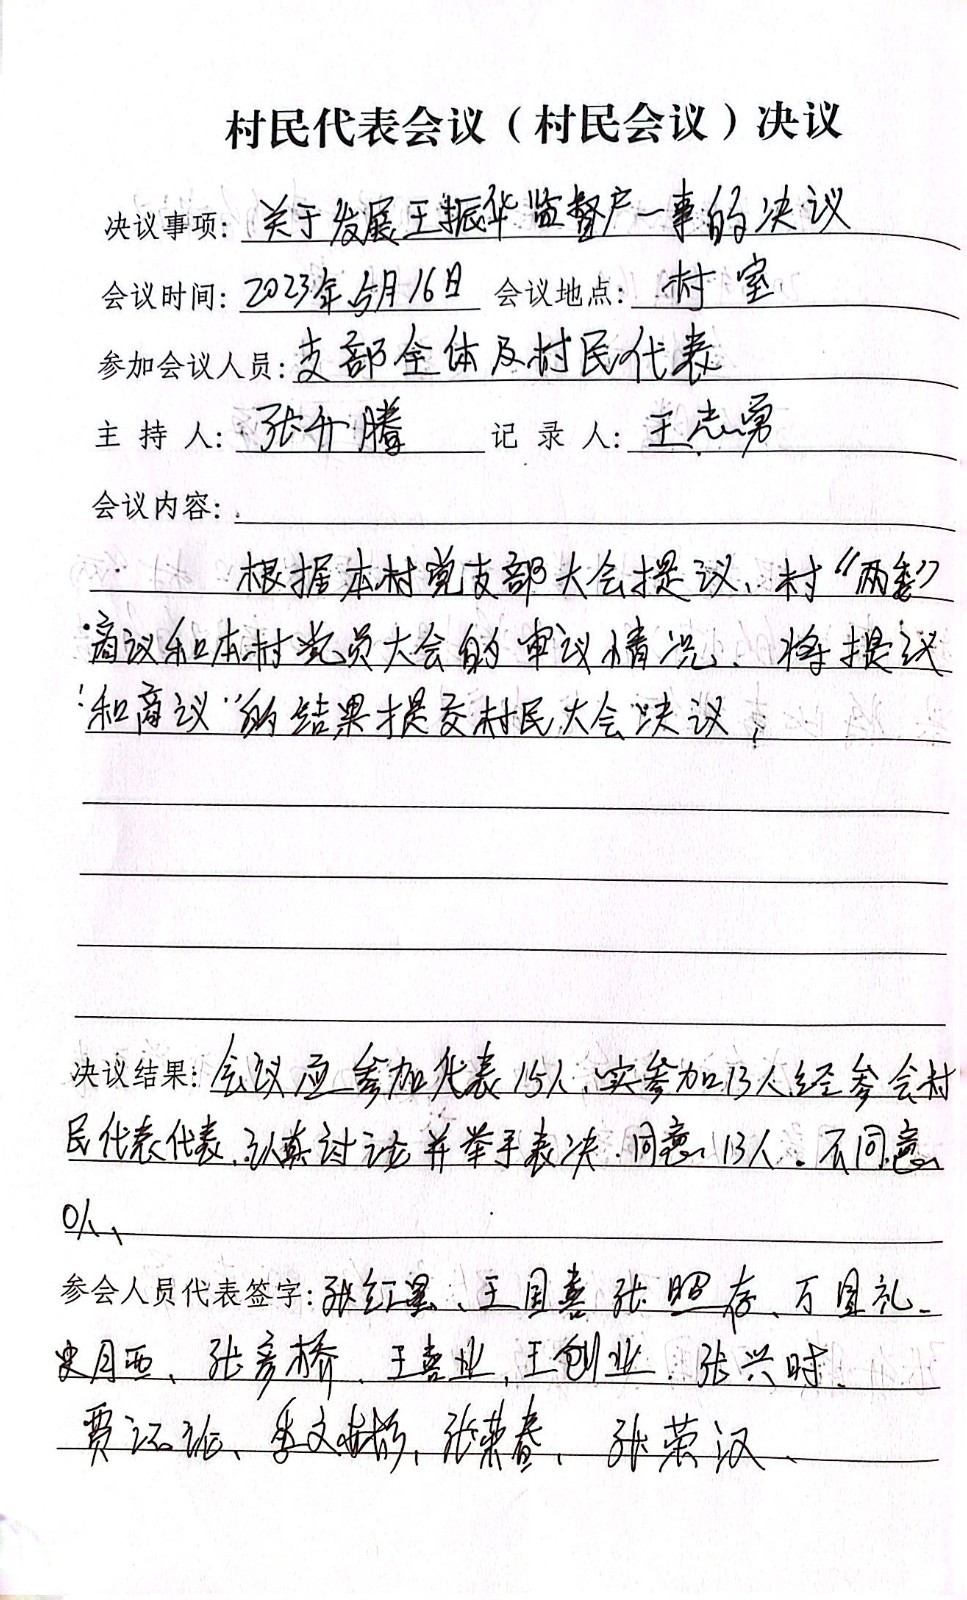 村民代表会议（村民会议）决议
决议事项: 关于发展王振华监督户一事的决议
会议时间: 2023年5月16日 会议地点: 村室
参加会议人员: 支部全体及村民代表
主持人: 张升腾 记录人: 王志勇
会议内容:
根据本村党支部大会提议、村“两委”
商议和本村党员大会的审议情况、将提议
和商议”的结果提交村民大会决议;
决议结果: 会议应参加代表15人,实参加13人,经参会村
民代表代表、认真讨论并举手表决.同意13人.不同意
0人、
参会人员代表签字: 张红星、王国喜 张照存、万国礼、
史月西、张彦桥、王喜业、王创业、张兴时、
贾 张荣春、张荣汉、